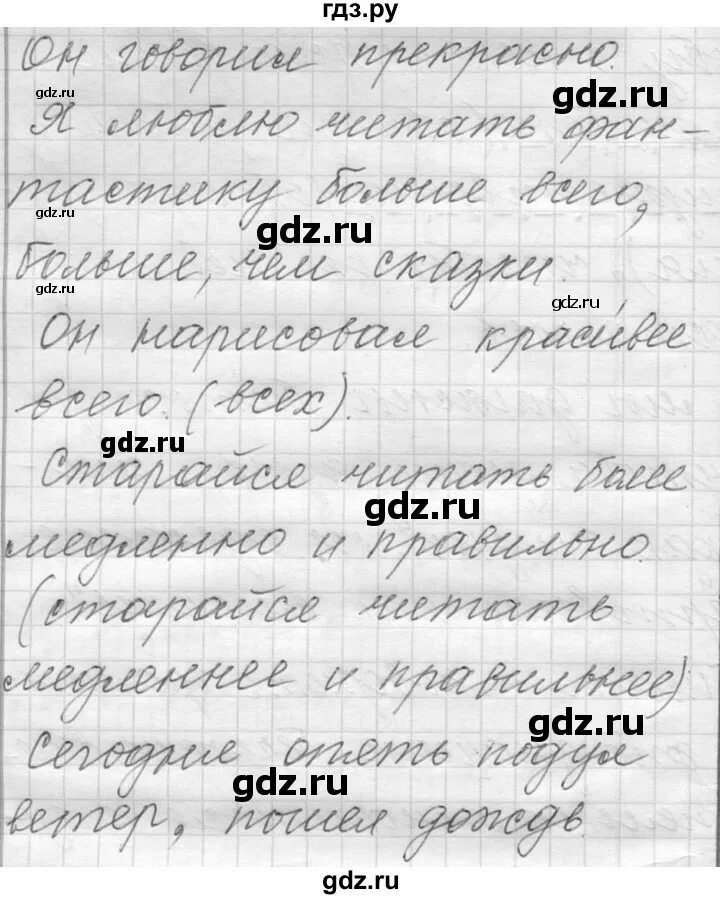 гдз.ру
Он говорил прекрасно.
gdz.ru
gdz.ru
Я люблю читать фан-
gdz.ru
тастику больше всего,
gdz.ru
gdz.ru
больше, чем сказки.
gdz.ru
gdz.ru
Он нарисовал красивее
всего. (всех).
gdz.ru
Старайся читать более
gdz.ru
медленно и правильно.
(старайся читать
медленнее и правильнее)
gdz.ru
Сегодня опять подул
gdz.ru
ветер, пошел дождь.
gdz.ru